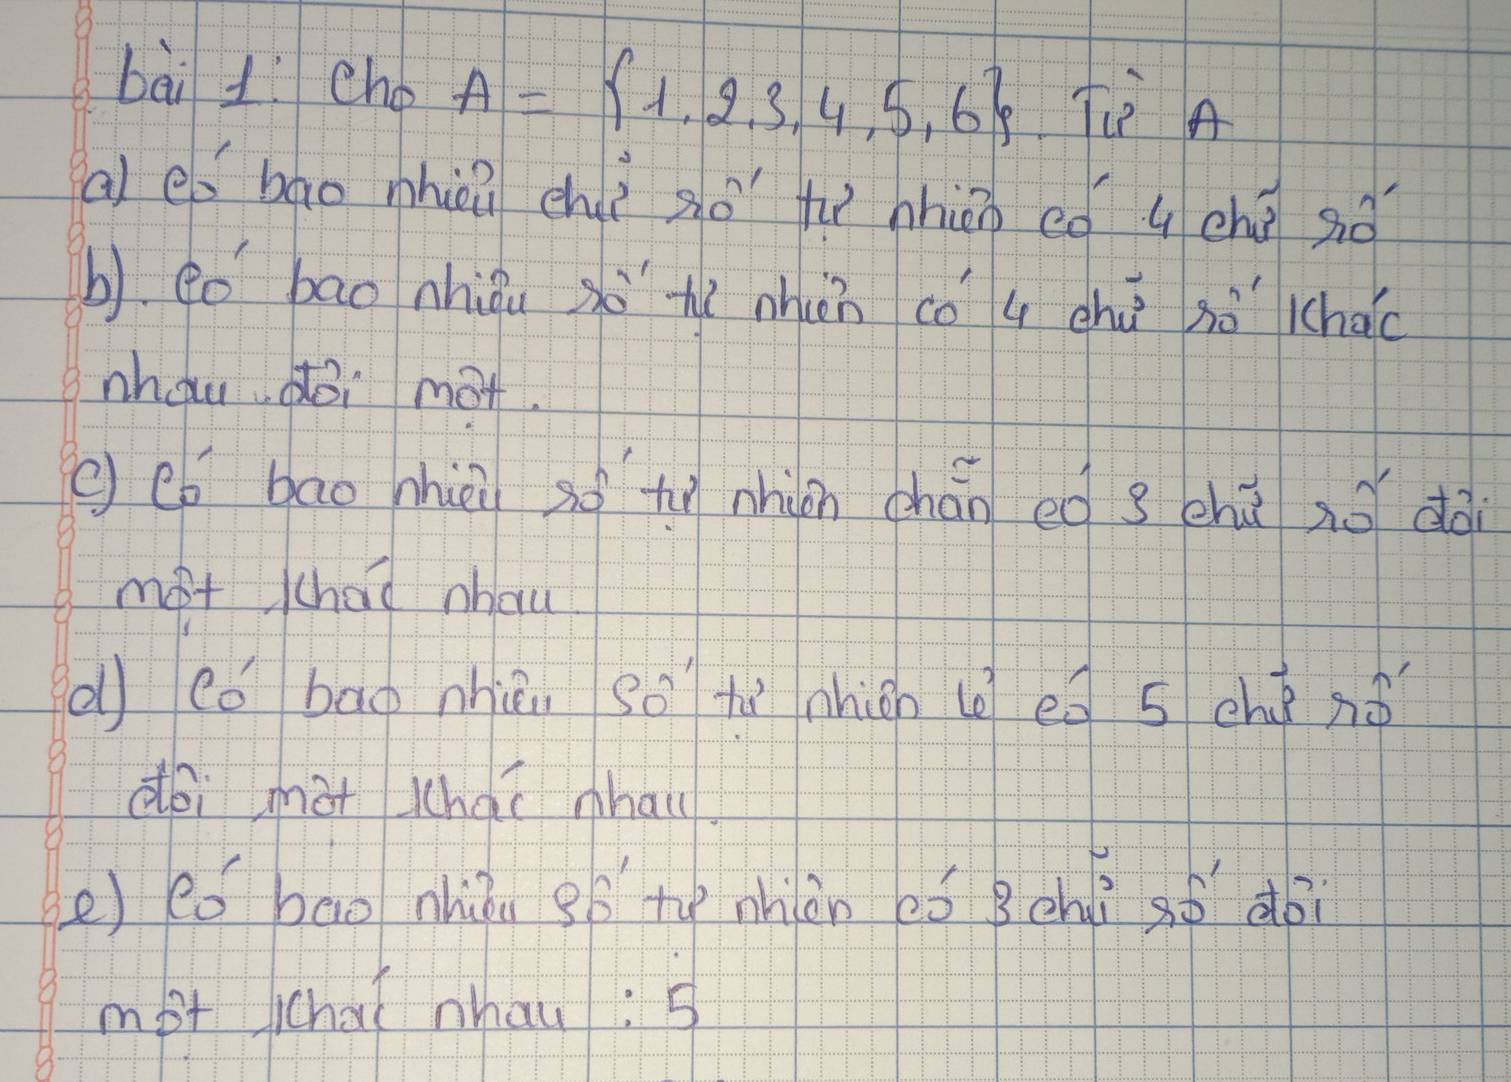 bài 1: Cho A = {1,2,3,4,5,6}. Từ A
a) Có bao nhiêu chữ số tự nhiên có 4 chữ số
b). Có bao nhiêu số tự nhiên có 4 chữ số khác
nhau đôi một.
c) Có bao nhiêu số tự nhiên chẵn có 3 chữ số đôi
một khác nhau
d) Có bao nhiêu số tự nhiên lẻ có 5 chữ số
đôi một khác nhau.
e) Có bao nhiêu số tự nhiên có 3 chữ số đôi
một khác nhau : 5